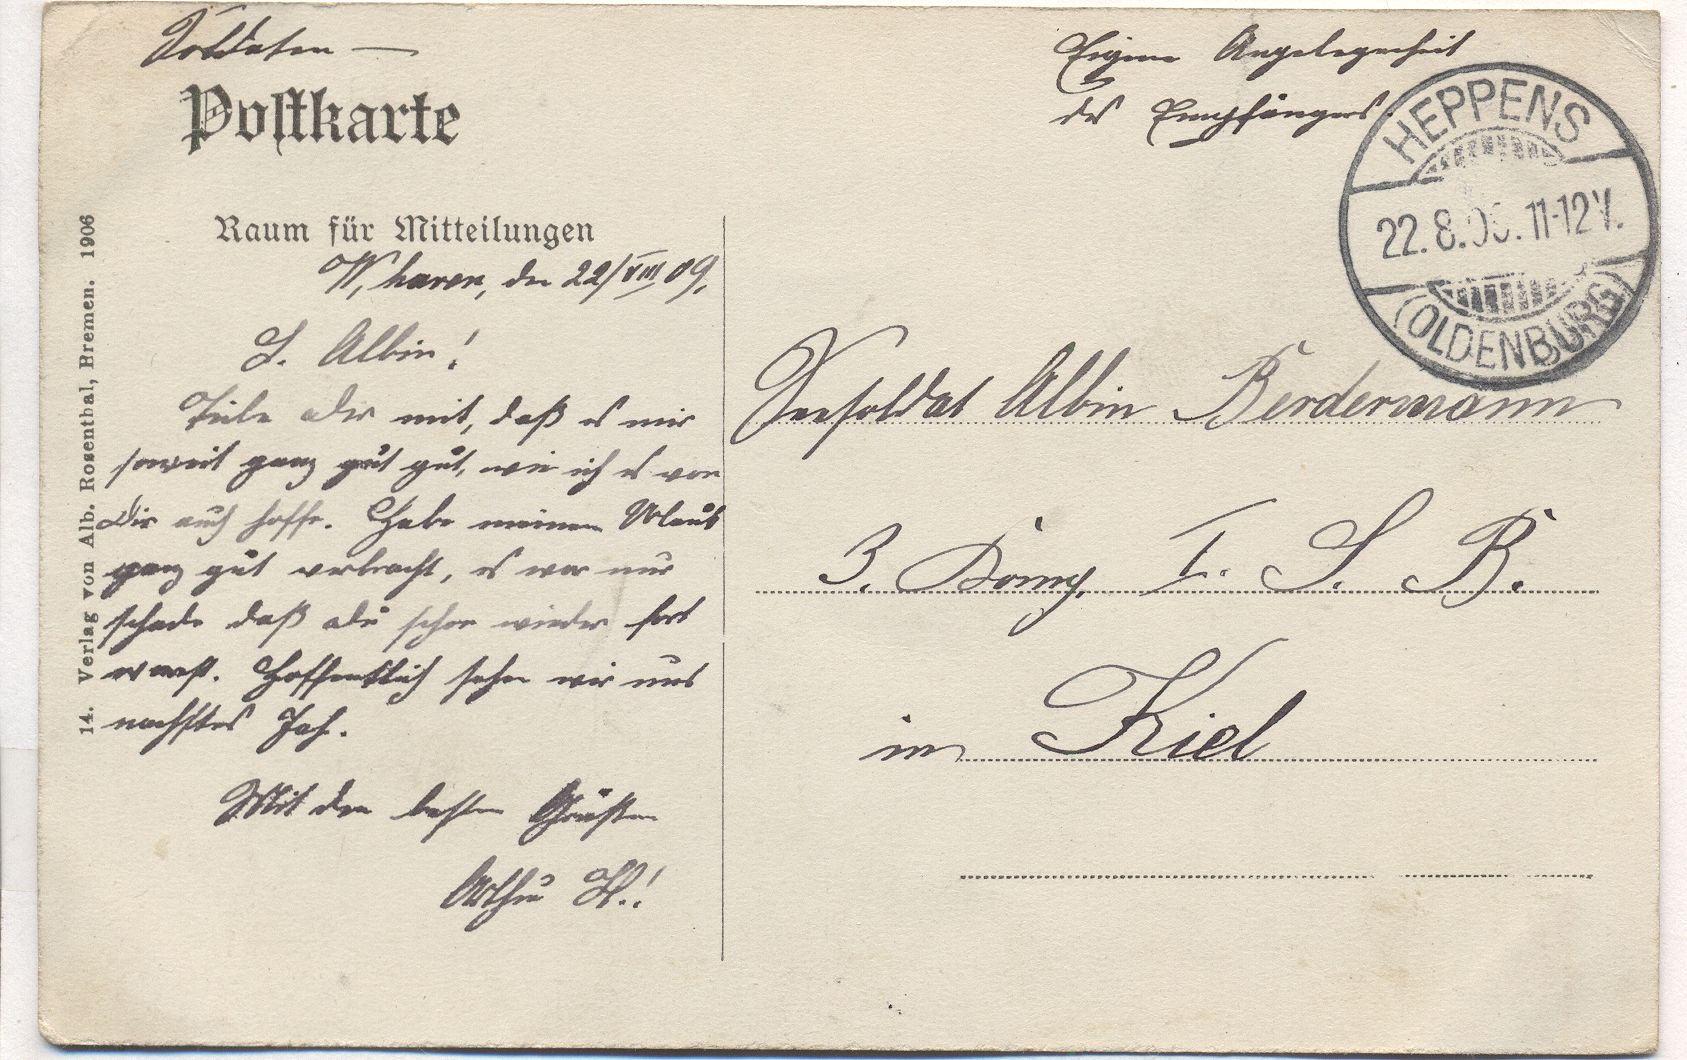 Soldaten —
Postkarte
Eigene Angelegenheit
des Empfängers.
HEPPENS
22.8.09. 11-12 V.
(OLDENBURG)
Raum für Mitteilungen
W, haven, den 22/VIII 09.
L. Albin!
Teile dir mit, daß es mir
soweit ganz gut geht, wie ich es von
Dir auch hoffe. Habe meinen Urlaub
ganz gut verbracht, es war nur
schade daß du schon wieder fort
warst. Hoffentlich sehen wir uns
nächstes Jah.
Mit den besten Grüßen
Arthur H.!
Seesoldat Albin Berdermann
3. Komp. I. S. B.
in Kiel
14. Verlag von Alb. Rosenthal, Bremen. 1906